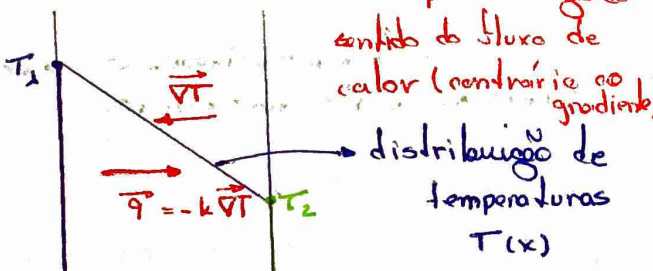 sentido do fluxo de
calor (contrário ao
gradiente
T₁
∇T
distribuição de
temperaturas
T(x)
q = -k ∇T
T₂